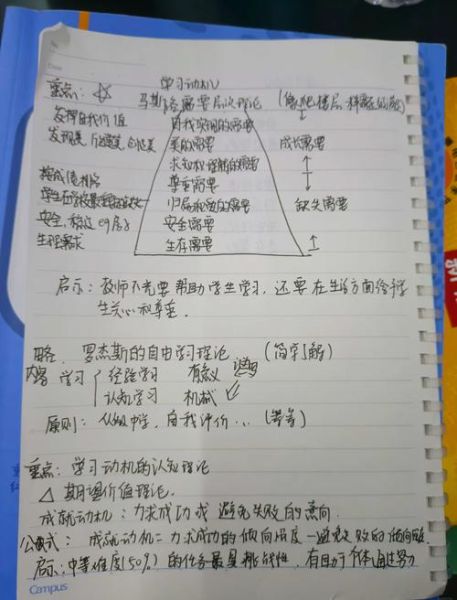 学习动机
重点: ☆ 马斯洛需要层次理论 (像爬楼层一样
发挥自我价值 自我实现的需要
发现美、 审美的需要 成长需要
求知和理解的需要
尊重需要
归属和爱的需要 缺失需要
安全、稳定 安全需要
生理需求 生存需要
启示: 教师不光要帮助学生学习, 还要在生活方面给予学
生关心和尊重.
略. 罗杰斯的自由学习理论 (简单了解)
内容 学习 经验学习 有意义
认知学习 机械
原则: 自我评价... (等等)
重点: 学习动机的认知理论
△ 期望价值理论.
成就动机: 力求成功或避免失败的意向
公式: 成就动机=力求成功的倾向强度-避免失败的倾向强度
启示: 中等难度(50%)的任务最具挑战性, 有助于个体通过努力
Campus